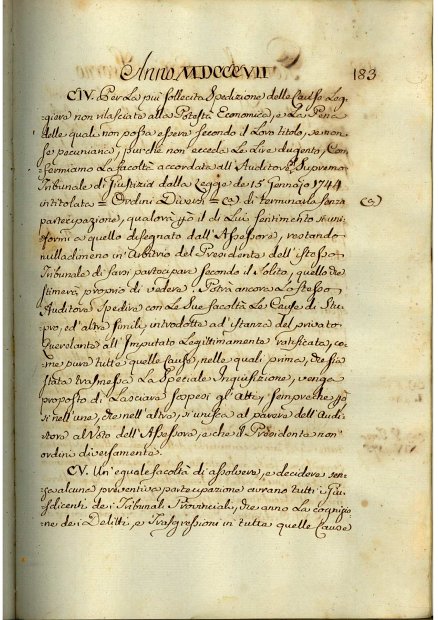 Anno MDCCCVII 183
CIV. Per La più sollecita Spedizione delle Cause Leg-
giere non rilasciate alla Potestà Economica, e La Pena
delle quali non possa essere secondo il Loro titolo, se non
pecuniaria, purchè non ecceda Le Lire dugento, Con-
fermiamo La facoltà accordata all'Auditore Supremo
Tribunale di Giustizia dalla Legge de' 15 Gennajo 1744
intitolata = Ordini Diversi = (a) di terminarle senza (a)
partecipazione, qualora il di Lui sentimento si uni-
formi a quello disegnato dall'Assessore, restando
nulladimeno in Arbitrio del Presidente dell'istesso
Tribunale di farsi partecipare secondo il Solito, quello che
stimerà proprio di vedere. Potrà ancora Lo stesso
Auditore Spedire con Le Sue facoltà Le Cause di Stu-
pro, ed altre simili introdotte ad istanza del privato
Querelante all'Imputato Legittimamente ratificata, co-
me pure tutte quelle Cause, nelle quali prima, che sia
stata trasmessa La Speciale Inquisizione, venga
proposto di Lasciare sospesi gl'Atti, sempreche
sì nell'une, che nell'altre, si unisca al parere dell'Audi-
tore al Voto dell'Assessore, e che il Presidente non
ordini diversamente.
CV. Un'eguale facoltà di assolvere, e decidere sen-
za alcuna preventiva partecipazione avranno tutti i Giu-
sdicenti de' Tribunali Provinciali, che anno La cognizio-
ne dei Delitti, e Trasgressioni in tutte quelle Cause